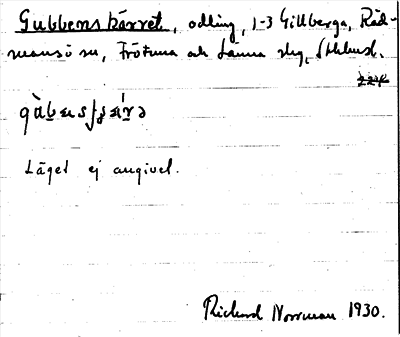 Gubbenskärret, odling, 1-3 Gillberga, Råd-
mansö sn, Frötuna och Länna skg, Sthlms l.
Läget ej angivet.
Rickard Norrman 1930.